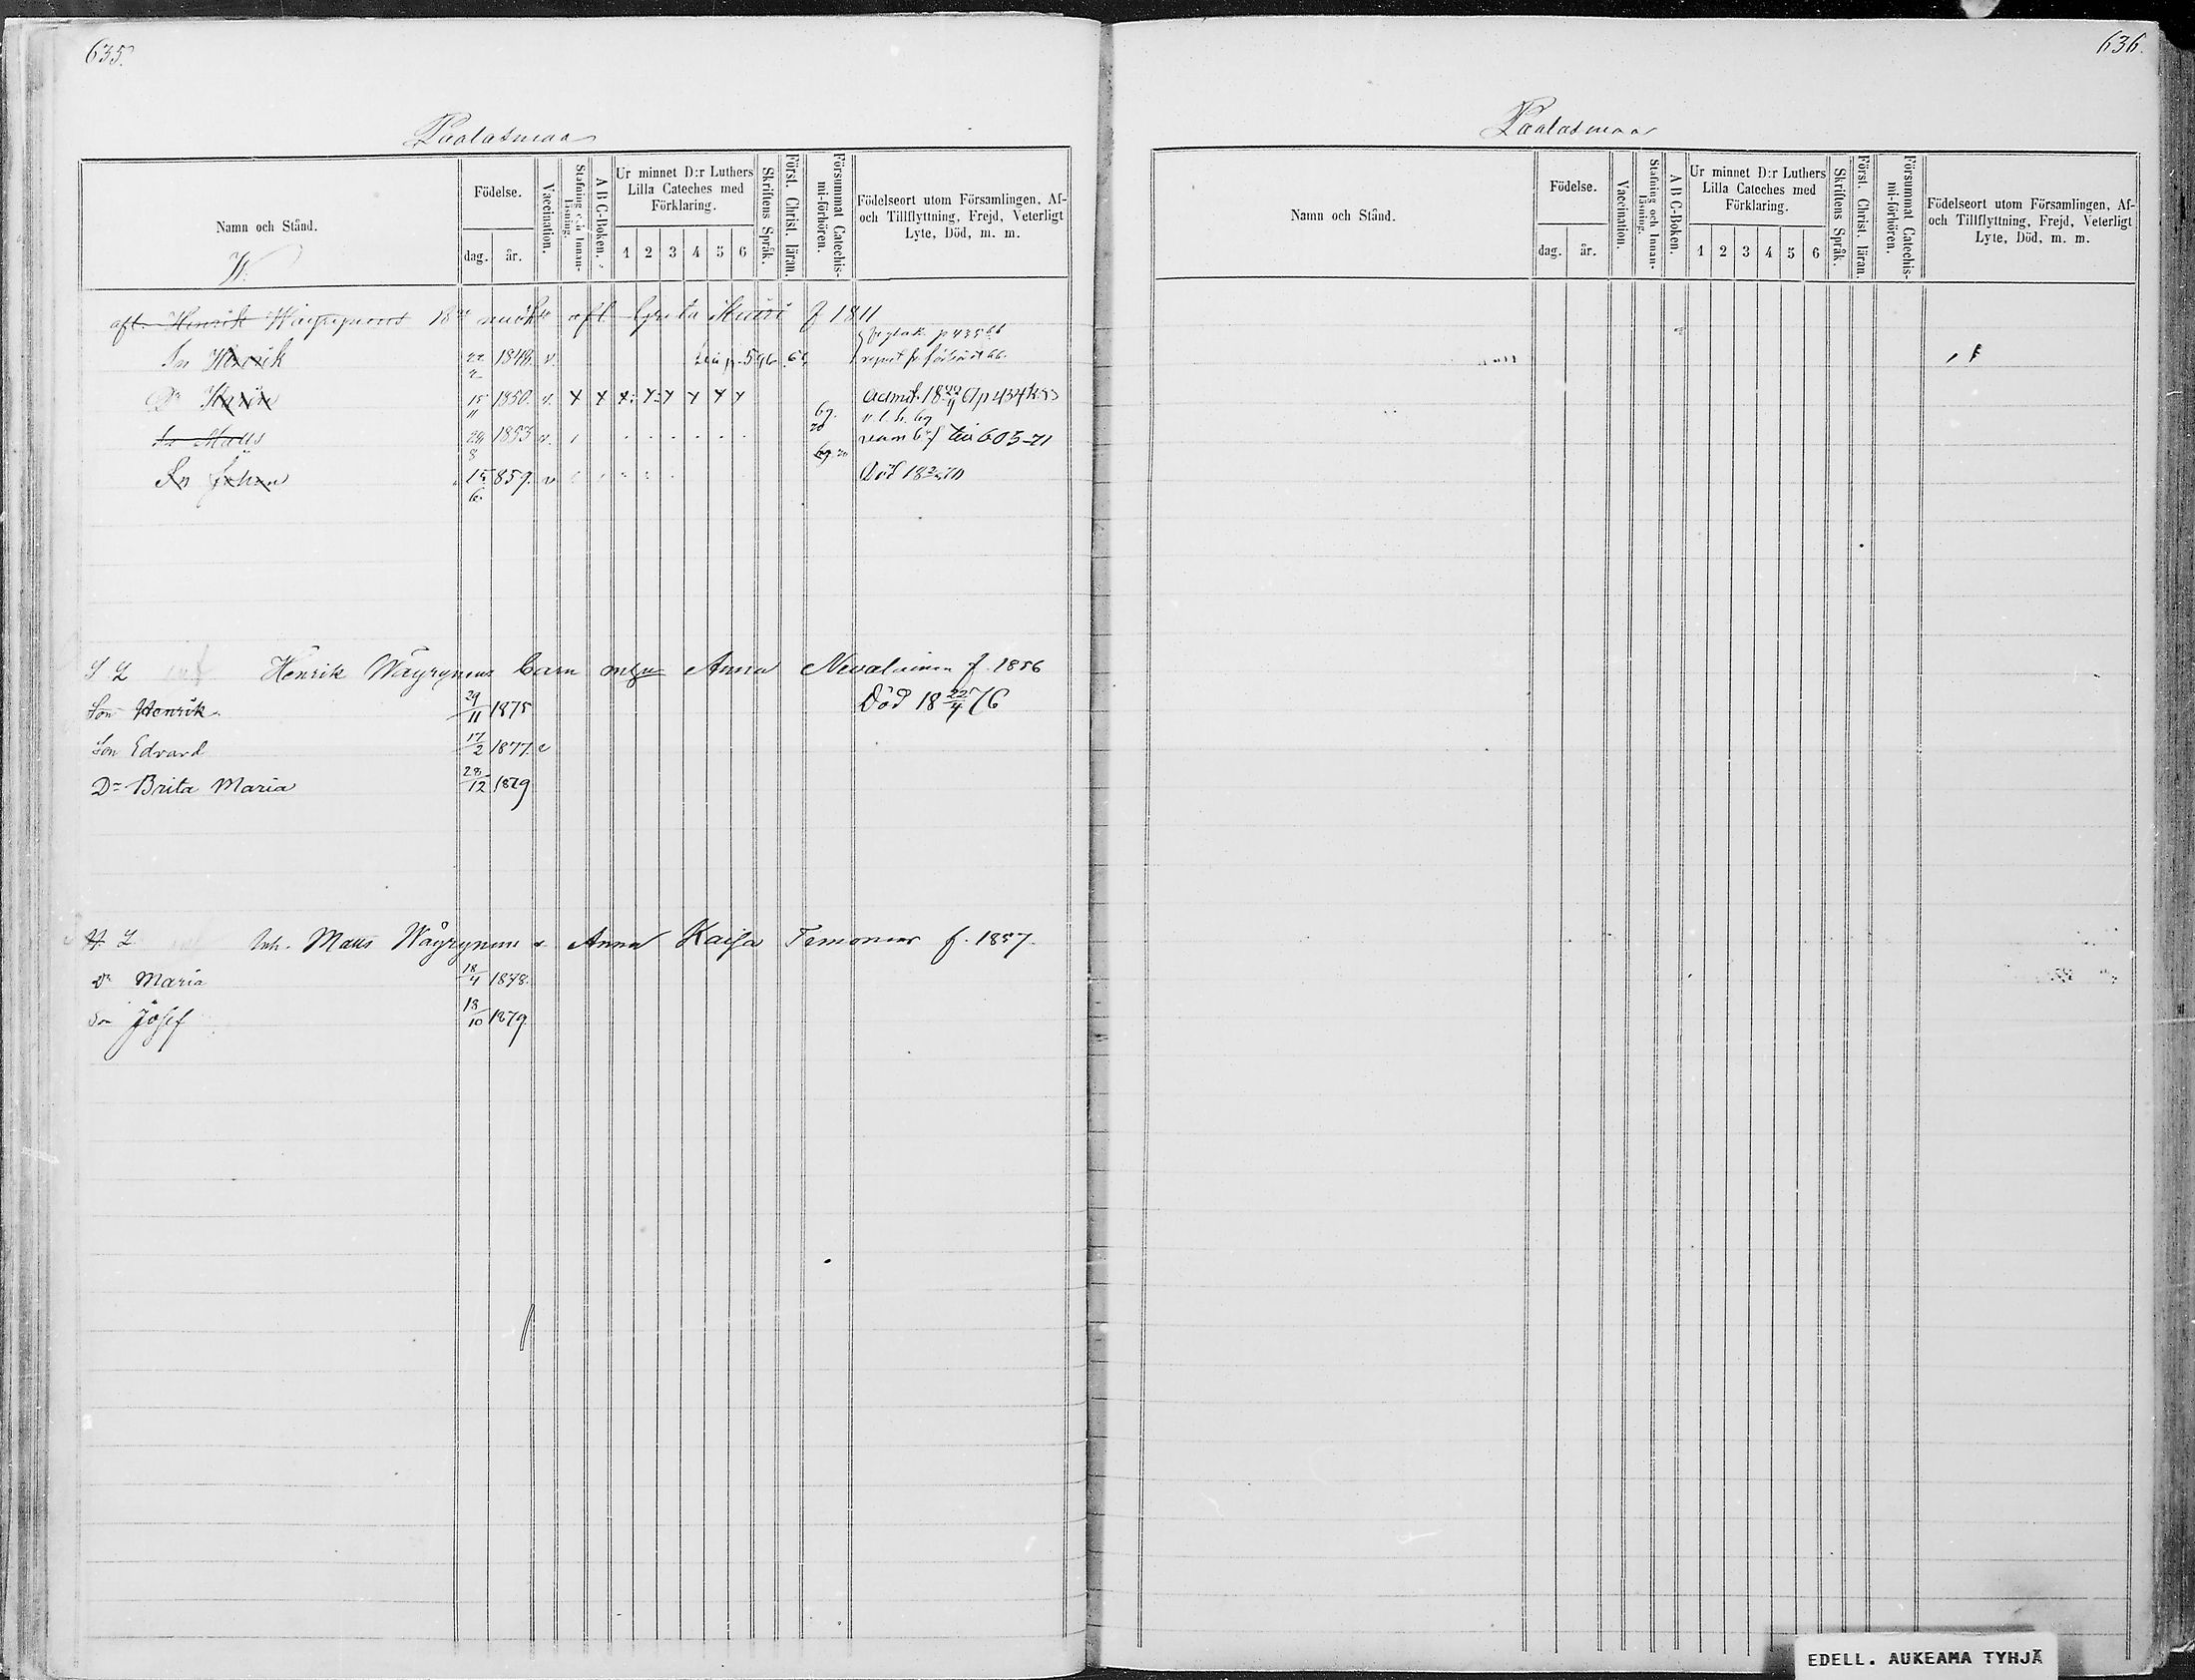 635.
Paalasmaa
Namn och Stånd.
W.
Födelse.
dag. år.
Vaccination.
Stafning och Innan-läsning.
A B C-Boken.
Ur minnet D:r Luthers Lilla Cateches med Förklaring.
1 2 3 4 5 6
Skriftens Språk.
Först. Christ. läran.
Försummat Catechis-mi-förhören.
Födelseort utom Församlingen, Af- och Tillflyttning, Frejd, Veterligt Lyte, Död, m. m.
afl. Henrik Wäyrynens afl. Greta f 1811
Sn Henrik 22 1848. v. p. 596
Dr Karin 15/11 1850. v. Admit.
Sn Matts 29/8 1853 v. 605-71
Sn Johan 15/6 859. v Död
S L Henrik Wäyrynens barn m Anna Nevalainen f. 1856
Son Henrik 29/11 1875 Död 18 22/4 76
Son Edvard 17/2 1877. v
Dr Brita Maria 28/12 1879
H. L Inh. Matts Wäyrynens Anna Kaisa Timonens f. 1857.
Dr Maria 18/4 1878.
Son Josef 18/10 1879.
636.
Paalasmaa
Namn och Stånd.
Födelse.
dag. år.
Vaccination.
Stafning och Innan-läsning.
A B C-Boken.
Ur minnet D:r Luthers Lilla Cateches med Förklaring.
1 2 3 4 5 6
Skriftens Språk.
Först. Christ. läran.
Försummat Catechis-mi-förhören.
Födelseort utom Församlingen, Af- och Tillflyttning, Frejd, Veterligt Lyte, Död, m. m.
EDELL. AUKEAMA TYHJÄ